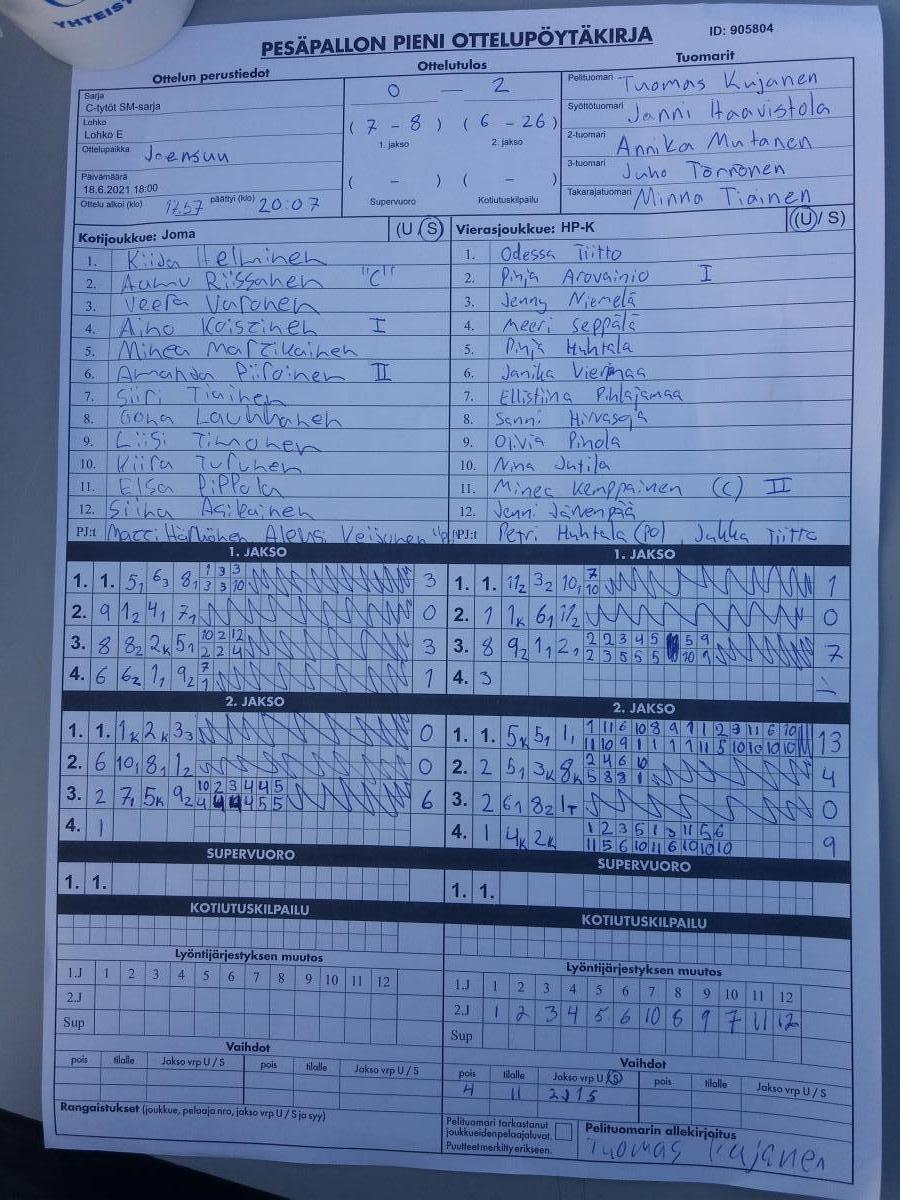 YHTEIST
PESÄPALLON PIENI OTTELUPÖYTÄKIRJA
ID: 905804
Ottelun perustiedot
Ottelutulos
Tuomarit
Sarja
C-tytöt SM-sarja
Lohko
Lohko E
Ottelupaikka Joensuu
Päivämäärä
18.6.2021 18:00
Ottelu alkoi (klo) 17.57 päättyi (klo) 20:07
0 — 2
( 7 - 8 ) ( 6 - 26 )
1. jakso 2. jakso
( - ) ( - )
Supervuoro Kotiutuskilpailu
Pelituomari Tuomas Kujanen
Syöttötuomari Janni Haavistola
2-tuomari Annika Mutanen
3-tuomari Juho Törrönen
Takarajatuomari Minna Tiainen
Kotijoukkue: Joma (U / S)
1. Kiida Helminen
2. Aamu Rissanen "C"
3. Veera Varonen
4. Aino Koistinen I
5. Minea Martikainen
6. Amanda Piiroinen II
7. Siiri Tiainen
8. Laukkanen
9. Liisi Timonen
10. Kiira Turunen
11. Elsa Pippola
12. Siina Asikainen
PJ:t Matti Härkönen, Aleksi Veijonen
Vierasjoukkue: HP-K (U / S)
1. Odessa Tiitto
2. Pinja Arovainio I
3. Jenny Niemelä
4. Meeri Seppälä
5. Pinja Huhtala
6. Janika Viermaa
7. Ellistiina Pihlajamaa
8. Sanni Hirvasoja
9. Olivia Pihola
10. Nina Jutila
11. Minea Kemppainen (C) II
12. Jenni Järvenpää
PJ:t Petri Huhtala (po), Jukka Tiitto
1. JAKSO
1. 1. 5₁ 6₃ 8₁ 3
2. 9 1₂ 4₁ 7₁ 0
3. 8 8₂ 2ₖ 5₁ 3
4. 6 6₂ 1₁ 9₂ 1
1. JAKSO
1. 1. 11₂ 3₂ 10₁ 1
2. 1 1ₖ 6₁ 11₂ 0
3. 8 9₂ 1₁ 2₁ 7
4. 3
2. JAKSO
1. 1. 1ₖ 2ₖ 3₃ 0
2. 6 10₁ 8₁ 1₂ 0
3. 2 7₁ 5ₖ 9₂ 6
4. 1
2. JAKSO
1. 1. 5ₖ 5₁ 1₁ 13
2. 2 5₁ 3ₖ 8ₖ 4
3. 2 6₁ 8₂ 1ₜ 0
4. 1 4ₖ 2ₖ 9
SUPERVUORO
1. 1.
SUPERVUORO
1. 1.
KOTIUTUSKILPAILU
KOTIUTUSKILPAILU
Lyöntijärjestyksen muutos
1.J 1 2 3 4 5 6 7 8 9 10 11 12
2.J
Sup
Lyöntijärjestyksen muutos
1.J 1 2 3 4 5 6 7 8 9 10 11 12
2.J 1 2 3 4 5 6 10 8 9 7 11 12
Sup
Vaihdot
pois tilalle Jakso vrp U / S pois tilalle Jakso vrp U / S
Vaihdot
pois tilalle Jakso vrp U / S pois tilalle Jakso vrp U / S
4 11
Rangaistukset (joukkue, pelaaja nro, jakso vrp U / S ja syy)
Pelituomari tarkastanut
joukkueiden pelaajaluvat.
Puutteet merkitty erikseen.
Pelituomarin allekirjoitus
Tuomas Kujanen